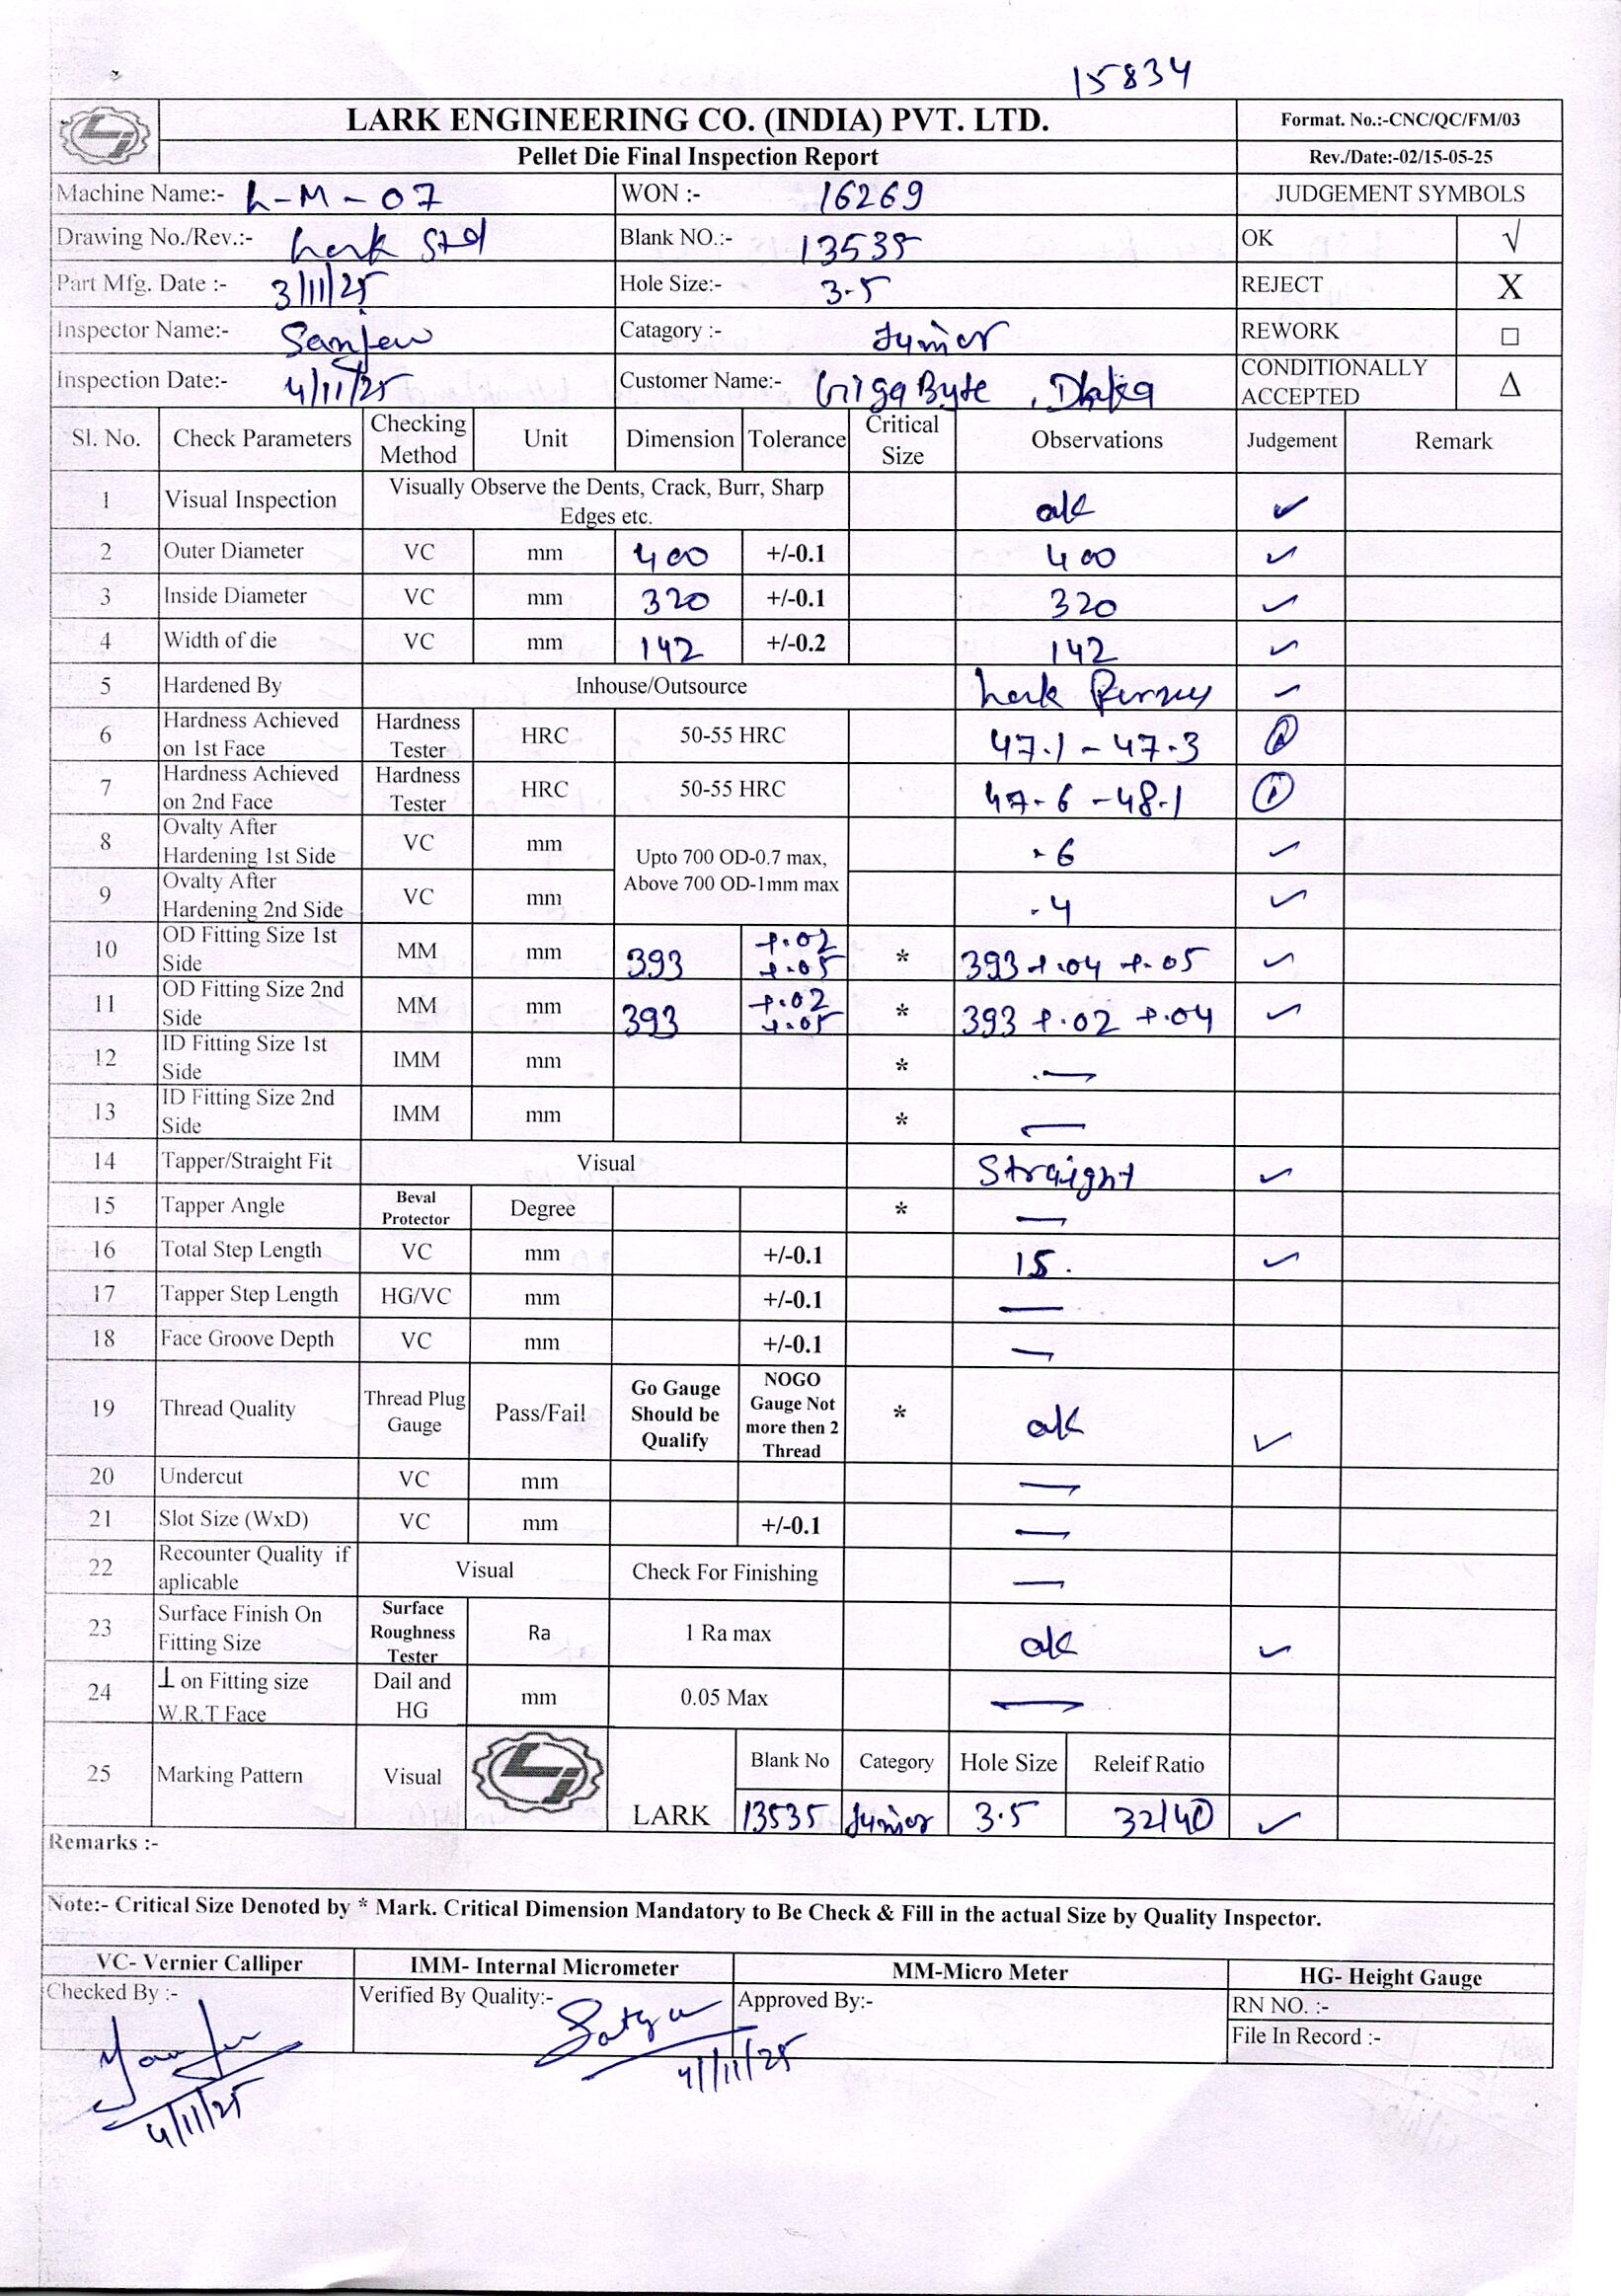 15834
LARK ENGINEERING CO. (INDIA) PVT. LTD.
Format. No.:-CNC/QC/FM/03
Pellet Die Final Inspection Report
Rev./Date:-02/15-05-25
Machine Name:- L-M-07 WON :- 16269 JUDGEMENT SYMBOLS
Drawing No./Rev.:- Lark Std Blank NO.:- 13535 OK √
Part Mfg. Date :- 3/11/25 Hole Size:- 3.5 REJECT X
Inspector Name:- Sanjeev Catagory :- Junior REWORK □
Inspection Date:- 4/11/25 Customer Name:- GigaByte, Dhaka CONDITIONALLY ACCEPTED Δ
Sl. No. Check Parameters Checking Method Unit Dimension Tolerance Critical Size Observations Judgement Remark
1 Visual Inspection Visually Observe the Dents, Crack, Burr, Sharp Edges etc. ok ✓
2 Outer Diameter VC mm 400 +/-0.1 400 ✓
3 Inside Diameter VC mm 320 +/-0.1 320 ✓
4 Width of die VC mm 142 +/-0.2 142 ✓
5 Hardened By Inhouse/Outsource Lark ✓
6 Hardness Achieved on 1st Face Hardness Tester HRC 50-55 HRC 47.1 - 47.3
7 Hardness Achieved on 2nd Face Hardness Tester HRC 50-55 HRC 47.6 - 48.1
8 Ovalty After Hardening 1st Side VC mm Upto 700 OD-0.7 max, Above 700 OD-1mm max .6 ✓
9 Ovalty After Hardening 2nd Side VC mm .4 ✓
10 OD Fitting Size 1st Side MM mm 393 +.02 +.05 * 393 +.04 +.05 ✓
11 OD Fitting Size 2nd Side MM mm 393 +.02 +.05 * 393 +.02 +.04 ✓
12 ID Fitting Size 1st Side IMM mm * —
13 ID Fitting Size 2nd Side IMM mm * —
14 Tapper/Straight Fit Visual Straight ✓
15 Tapper Angle Beval Protector Degree * —
16 Total Step Length VC mm +/-0.1 15. ✓
17 Tapper Step Length HG/VC mm +/-0.1 —
18 Face Groove Depth VC mm +/-0.1 —
19 Thread Quality Thread Plug Gauge Pass/Fail Go Gauge Should be Qualify NOGO Gauge Not more then 2 Thread * ok ✓
20 Undercut VC mm —
21 Slot Size (WxD) VC mm +/-0.1 —
22 Recounter Quality if aplicable Visual Check For Finishing —
23 Surface Finish On Fitting Size Surface Roughness Tester Ra 1 Ra max ok ✓
24 ⊥ on Fitting size W.R.T Face Dail and HG mm 0.05 Max —
25 Marking Pattern Visual LARK Blank No Category Hole Size Releif Ratio
13535 Junior 3.5 32/40 ✓
Remarks :-
Note:- Critical Size Denoted by * Mark. Critical Dimension Mandatory to Be Check & Fill in the actual Size by Quality Inspector.
VC- Vernier Calliper IMM- Internal Micrometer MM-Micro Meter HG- Height Gauge
Checked By :- Verified By Quality:- Satya Approved By:- RN NO. :-
File In Record :-
4/11/25 4/11/25